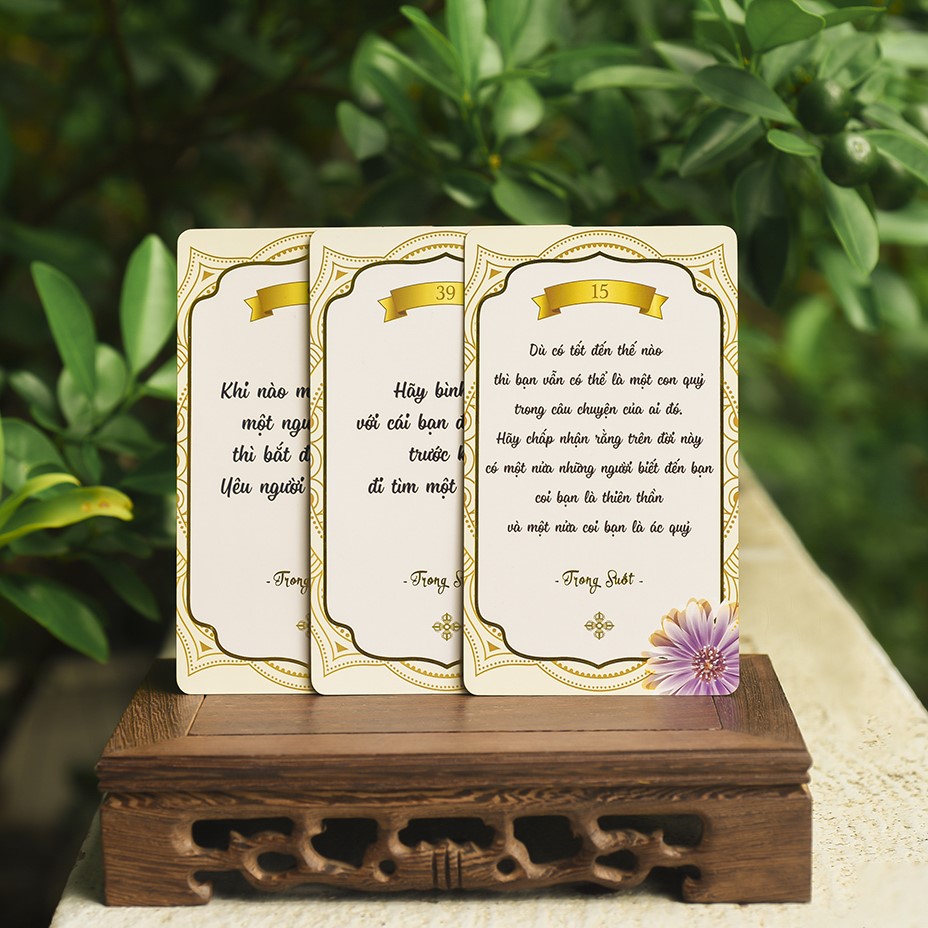 Khi nào
một
thì bắt
Yêu người
- Trong
39
Hãy bình
với cái bạn
trước
đi tìm một
- Trong
15
Dù có tốt đến thế nào
thì bạn vẫn có thể là một con quỷ
trong câu chuyện của ai đó.
Hãy chấp nhận rằng trên đời này
có một nửa những người biết đến bạn
coi bạn là thiên thần
và một nửa coi bạn là ác quỷ
- Trong Suốt -